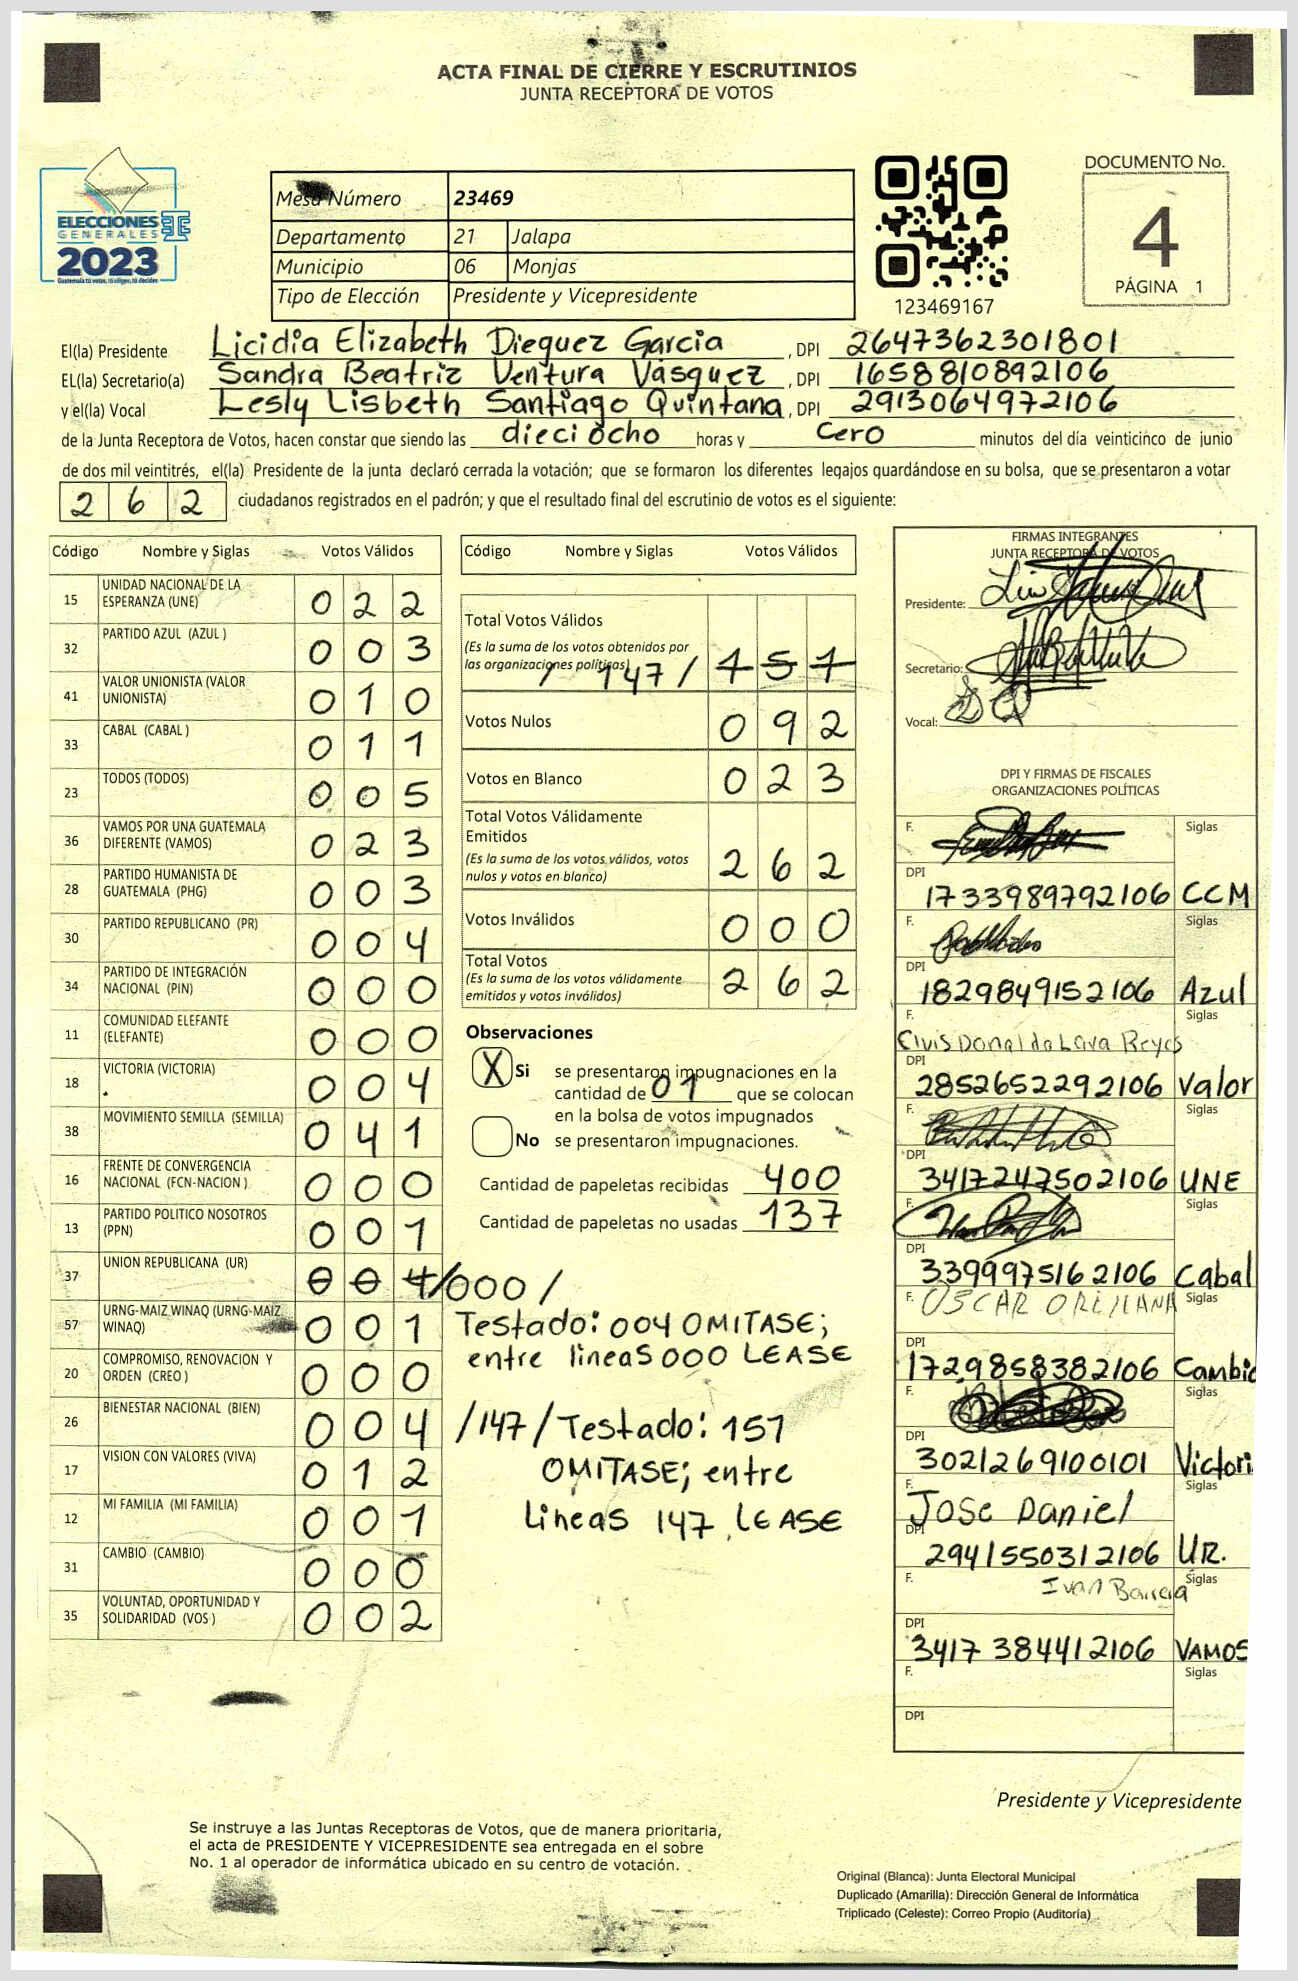 ACTA FINAL DE CIERRE Y ESCRUTINIOS
JUNTA RECEPTORA DE VOTOS
ELECCIONES
GENERALES
2023
Guatemala tú votas, tú eliges, tú decides
Mesa Número 23469
Departamento 21 Jalapa
Municipio 06 Monjas
Tipo de Elección Presidente y Vicepresidente
123469167
DOCUMENTO No.
4
PÁGINA 1
El(la) Presidente Licidia Elizabeth Dieguez Garcia , DPI 2647362301801
EL(la) Secretario(a) Sandra Beatriz Ventura Vásquez , DPI 1658810892106
y el(la) Vocal Lesly Lisbeth Santiago Quintana , DPI 2913064972106
de la Junta Receptora de Votos, hacen constar que siendo las dieciocho horas y cero minutos del día veinticinco de junio
de dos mil veintitrés, el(la) Presidente de la junta declaró cerrada la votación; que se formaron los diferentes legajos guardándose en su bolsa, que se presentaron a votar
2 6 2 ciudadanos registrados en el padrón; y que el resultado final del escrutinio de votos es el siguiente:
Código Nombre y Siglas Votos Válidos
15 UNIDAD NACIONAL DE LA ESPERANZA (UNE) 0 2 2
32 PARTIDO AZUL (AZUL ) 0 0 3
41 VALOR UNIONISTA (VALOR UNIONISTA) 0 1 0
33 CABAL (CABAL ) 0 1 1
23 TODOS (TODOS) 0 0 5
36 VAMOS POR UNA GUATEMALA DIFERENTE (VAMOS) 0 2 3
28 PARTIDO HUMANISTA DE GUATEMALA (PHG) 0 0 3
30 PARTIDO REPUBLICANO (PR) 0 0 4
34 PARTIDO DE INTEGRACIÓN NACIONAL (PIN) 0 0 0
11 COMUNIDAD ELEFANTE (ELEFANTE) 0 0 0
18 VICTORIA (VICTORIA) 0 0 4
38 MOVIMIENTO SEMILLA (SEMILLA) 0 4 1
16 FRENTE DE CONVERGENCIA NACIONAL (FCN-NACION ) 0 0 0
13 PARTIDO POLITICO NOSOTROS (PPN) 0 0 1
37 UNION REPUBLICANA (UR) 0 0 4 /000/
57 URNG-MAIZ WINAQ (URNG-MAIZ WINAQ) 0 0 1
20 COMPROMISO, RENOVACION Y ORDEN (CREO ) 0 0 0
26 BIENESTAR NACIONAL (BIEN) 0 0 4
17 VISION CON VALORES (VIVA) 0 1 2
12 MI FAMILIA (MI FAMILIA) 0 0 1
31 CAMBIO (CAMBIO) 0 0 0
35 VOLUNTAD, OPORTUNIDAD Y SOLIDARIDAD (VOS ) 0 0 2
Código Nombre y Siglas Votos Válidos
Total Votos Válidos
(Es la suma de los votos obtenidos por
las organizaciones políticas) /147/ 1 5 1
Votos Nulos 0 9 2
Votos en Blanco 0 2 3
Total Votos Válidamente
Emitidos
(Es la suma de los votos válidos, votos
nulos y votos en blanco) 2 6 2
Votos Inválidos 0 0 0
Total Votos
(Es la suma de los votos válidamente
emitidos y votos inválidos) 2 6 2
Observaciones
X Si se presentaron impugnaciones en la
cantidad de 01 que se colocan
en la bolsa de votos impugnados
No se presentaron impugnaciones.
Cantidad de papeletas recibidas 400
Cantidad de papeletas no usadas 137
Testado: 004 OMITASE;
entre lineas 000 LEASE
/147/ Testado: 151
OMITASE; entre
Lineas 147 LEASE
FIRMAS INTEGRANTES
JUNTA RECEPTORA DE VOTOS
Presidente:
Secretario:
Vocal:
DPI Y FIRMAS DE FISCALES
ORGANIZACIONES POLÍTICAS
F. Siglas
DPI 1733989792106 CCM
F. Siglas
DPI 1829849152106 Azul
F. Siglas
DPI 2852652292106 Valor
F. Siglas
DPI 3417247502106 UNE
F. Siglas
DPI 3399975162106 Cabal
F. OSCAR ORELLANA Siglas
DPI 1729858382106 Cambio
F. Siglas
DPI 3021269100101 Victori
F. Jose Daniel Siglas
DPI 2941550312106 UR.
F. Ivan Barrera Siglas
DPI 3417384412106 VAMOS
F. Siglas
DPI
Presidente y Vicepresidente
Se instruye a las Juntas Receptoras de Votos, que de manera prioritaria,
el acta de PRESIDENTE Y VICEPRESIDENTE sea entregada en el sobre
No. 1 al operador de informática ubicado en su centro de votación.
Original (Blanca): Junta Electoral Municipal
Duplicado (Amarilla): Dirección General de Informática
Triplicado (Celeste): Correo Propio (Auditoría)